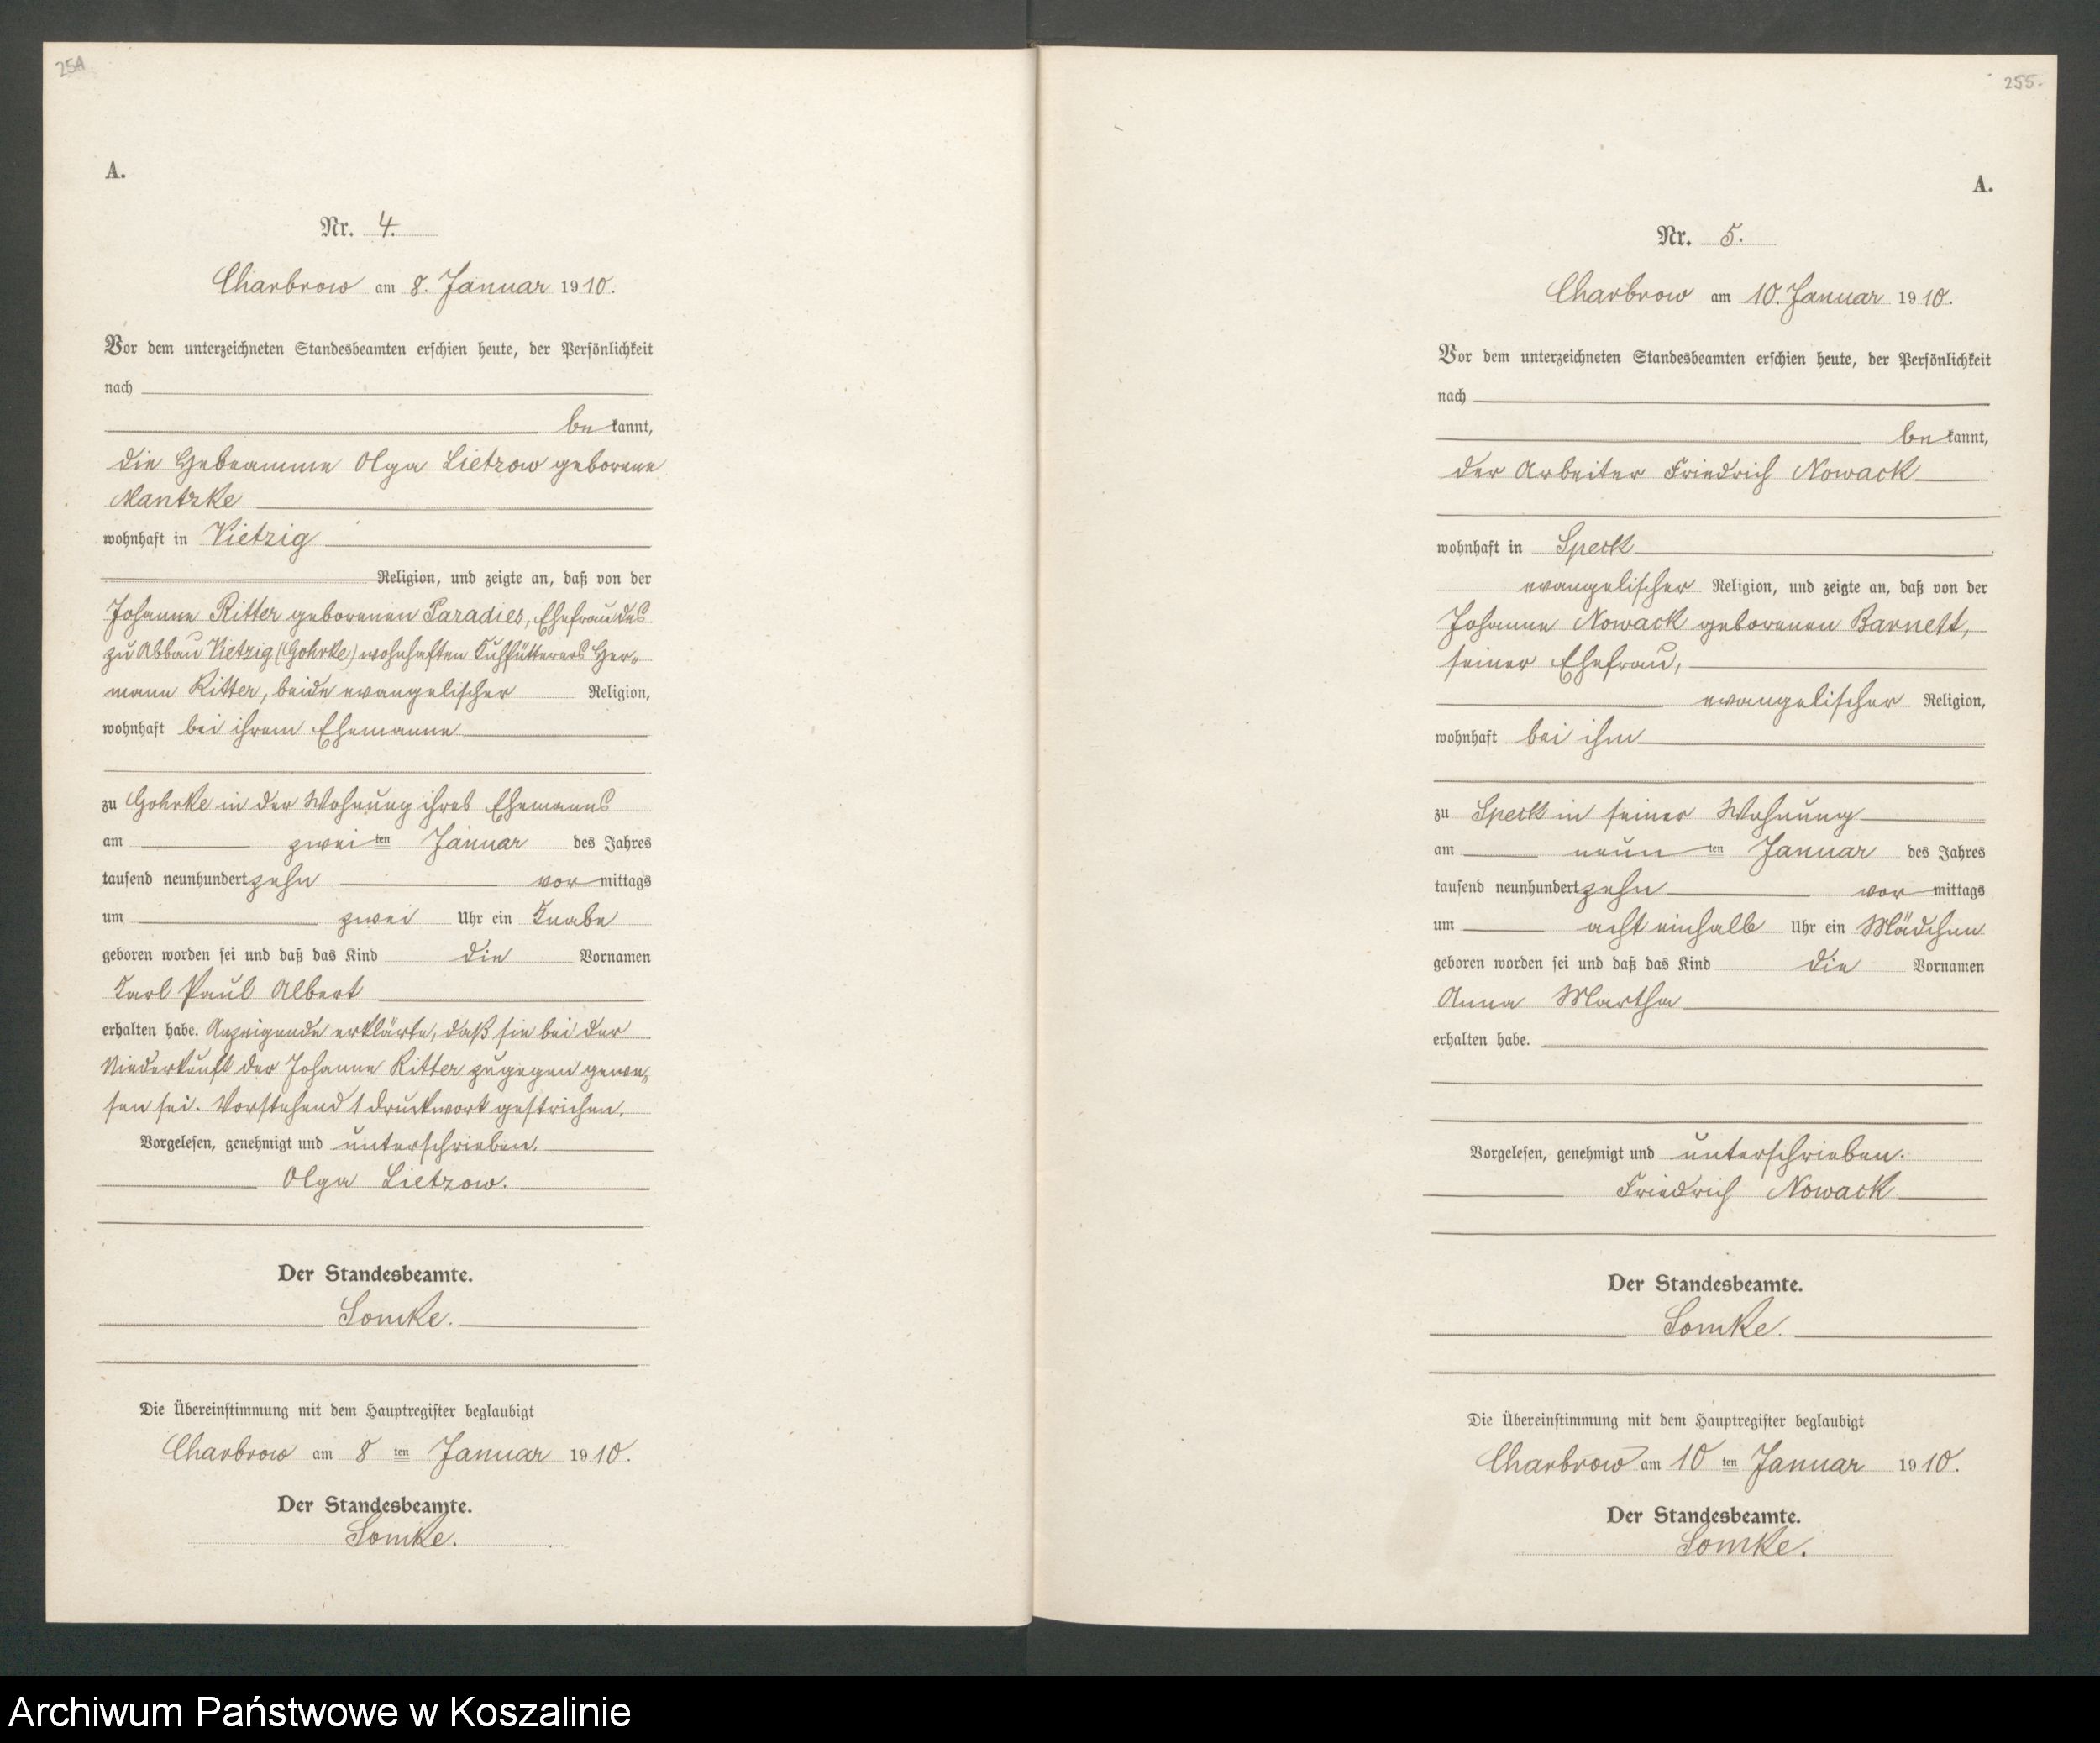 254
A.
Nr. 4.
Charbrow am 8. Januar 1910.
Vor dem unterzeichneten Standesbeamten erschien heute, der Persönlichkeit
nach
be kannt,
die Hebeamme Olga Lietzow geborene
Mantzke
wohnhaft in Vietzig
Religion, und zeigte an, daß von der
Johanne Ritter geborenen Paradies, Ehefrau des
zu Abbau Vietzig (Gohrke) wohnhaften Kuhfütterers Her„
mann Ritter, beide evangelischer Religion,
wohnhaft bei ihrem Ehemanne
zu Gohrke in der Wohnung ihres Ehemanns
am zwei ten Januar des Jahres
tausend neunhundert zehn vor mittags
um zwei Uhr ein Knabe
geboren worden sei und daß das Kind die Vornamen
Karl Paul Albert
erhalten habe. Anzeigende erklärte, daß sie bei der
Niederkunft der Johanne Ritter zugegen gewe„
sen sei. Vorstehend 1 Druckwort gestrichen.
Vorgelesen, genehmigt und unterschrieben.
Olga Lietzow.
Der Standesbeamte.
Somke.
Die Übereinstimmung mit dem Hauptregister beglaubigt
Charbrow am 8 ten Januar 1910.
Der Standesbeamte.
Somke.
255.
A.
Nr. 5.
Charbrow am 10. Januar 1910.
Vor dem unterzeichneten Standesbeamten erschien heute, der Persönlichkeit
nach
be kannt,
der Arbeiter Friedrich Nowack
wohnhaft in Speck
evangelischer Religion, und zeigte an, daß von der
Johanne Nowack geborenen Barnett,
seiner Ehefrau,
evangelischer Religion,
wohnhaft bei ihm
zu Speck in seiner Wohnung
am neun ten Januar des Jahres
tausend neunhundert zehn vor mittags
um acht einhalb Uhr ein Mädchen
geboren worden sei und daß das Kind die Vornamen
Anna Martha
erhalten habe.
Vorgelesen, genehmigt und unterschrieben.
Friedrich Nowack
Der Standesbeamte.
Somke.
Die Übereinstimmung mit dem Hauptregister beglaubigt
Charbrow am 10 ten Januar 1910.
Der Standesbeamte.
Somke.
Archiwum Państwowe w Koszalinie